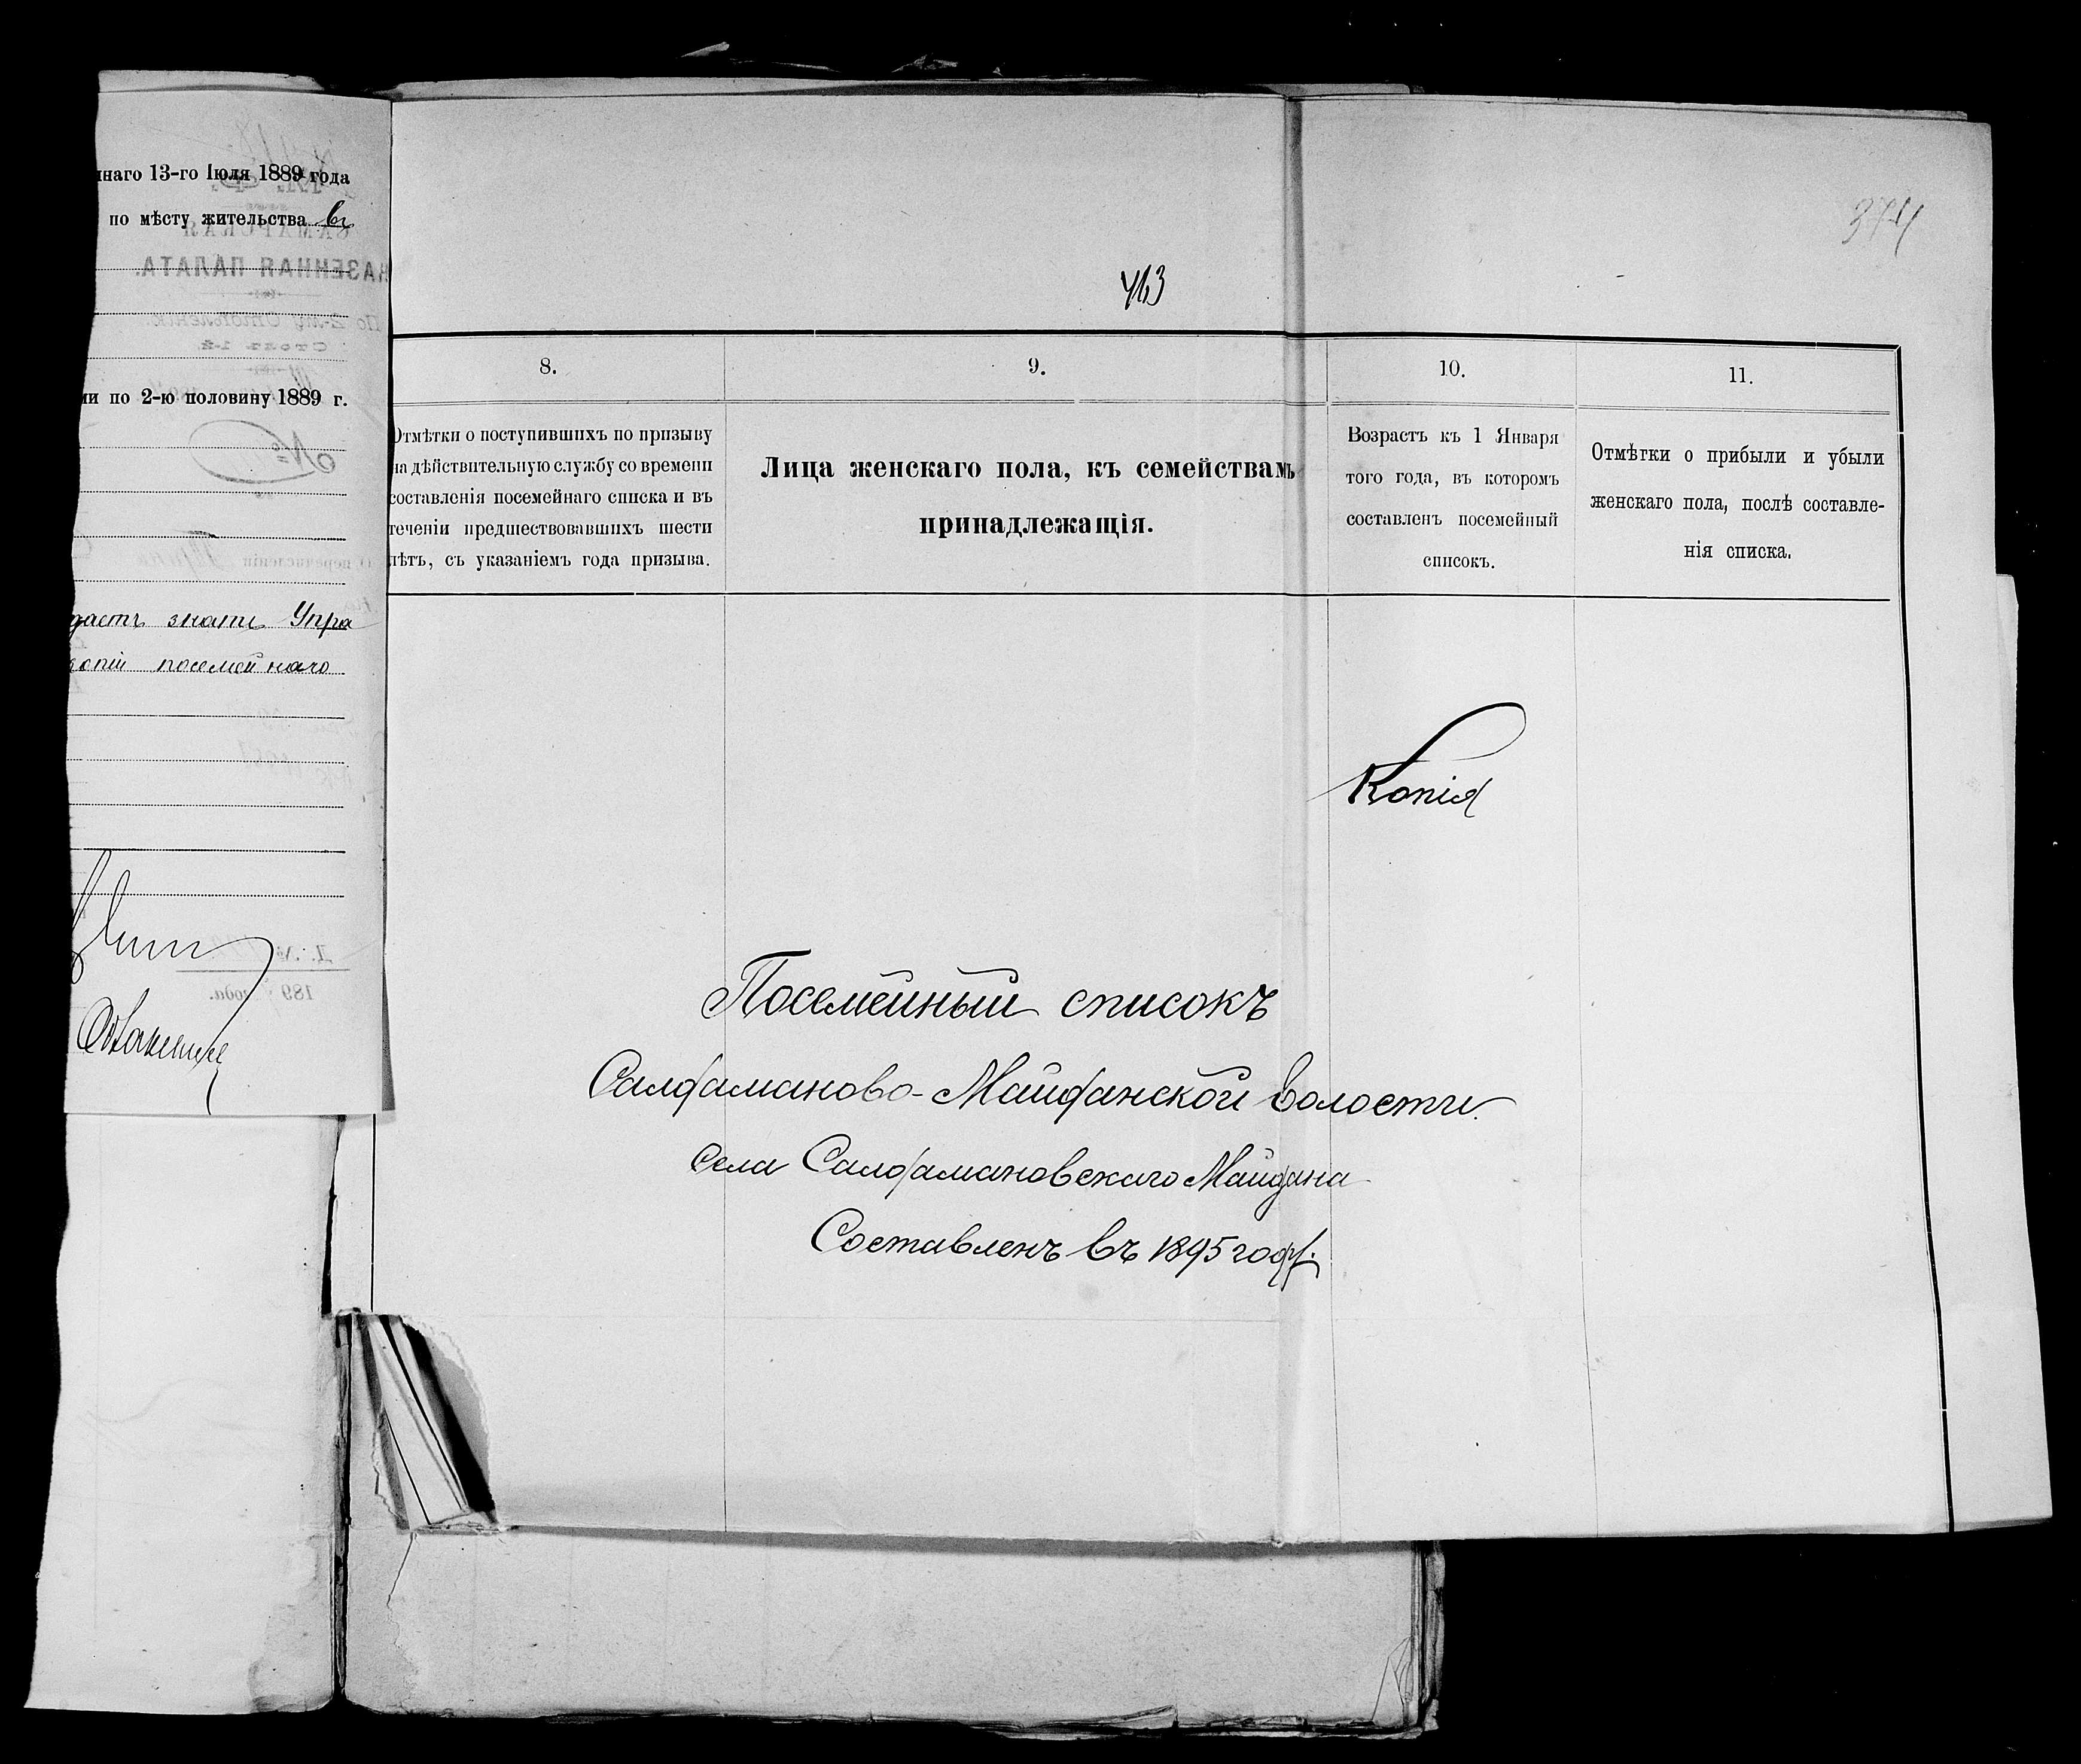 наго 13-го Іюля 1889 года
по мѣсту жительства въ
по 2-ю половину 1889 г.
дастъ знать Упра
копіи посемейнаго
374
413
8.
9.
10.
11.
Отмѣтки о поступившихъ по призыву
на дѣйствительную службу со времени
составленія посемейнаго списка и въ
теченіи предшествовавшихъ шести
лѣтъ, съ указаніемъ года призыва.
Лица женскаго пола, къ семействамъ
принадлежащія.
Возрастъ къ 1 Января
того года, въ которомъ
составленъ посемейный
списокъ.
Отмѣтки о прибыли и убыли
женскаго пола, послѣ составле-
нія списка.
Копія
Посемейный списокъ
Салдаманово-Майданской волости.
села Салдамановскаго Майдана
Составленъ въ 1895 году.